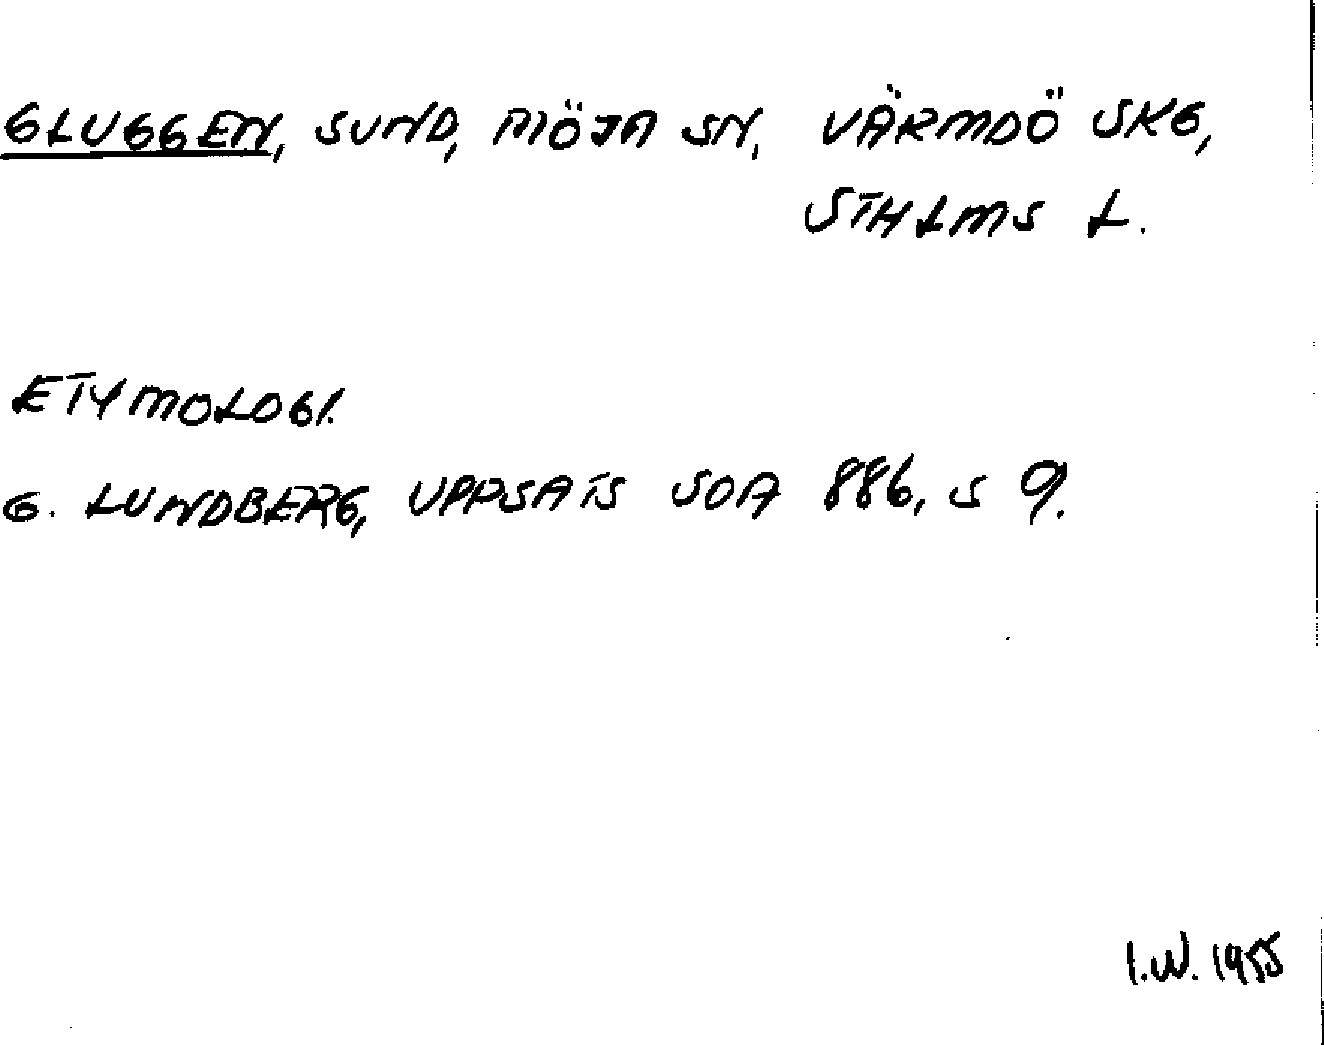 GLUGGEN, SUND, MÖJA SN, VÄRMDÖ SKG,
STHLMS L.
ETYMOLOGI.
G. LUNDBERG, UPPSATS SOA 886, S 9.
I.W. 1955